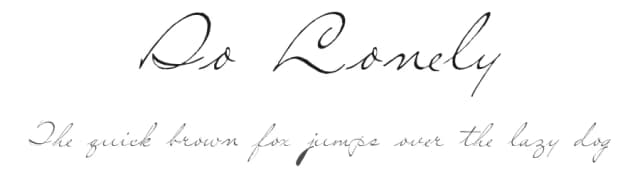 So Lonely
The quick brown fox jumps over the lazy dog